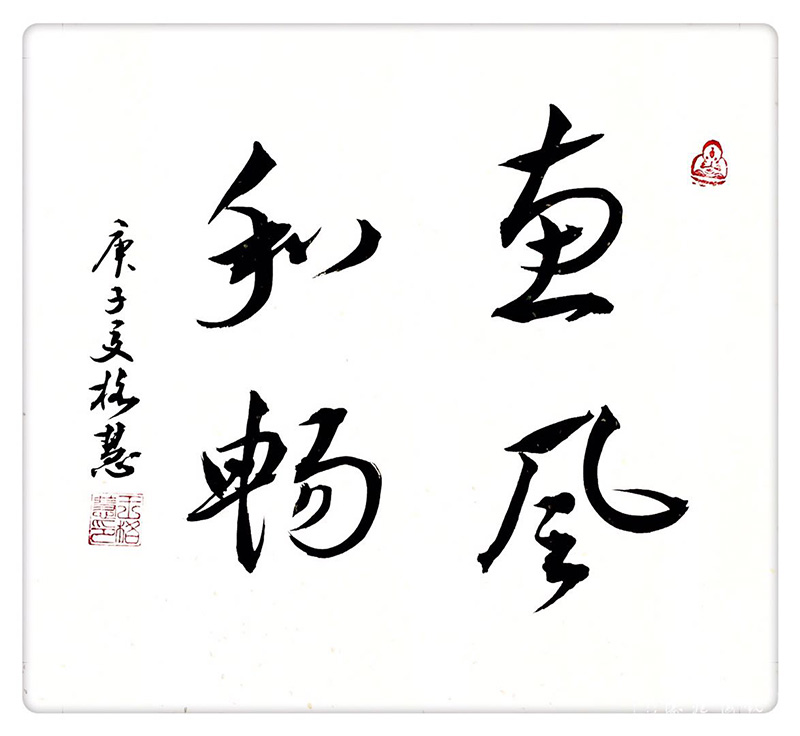 惠風
和暢
庚子夏格慧
王格慧印